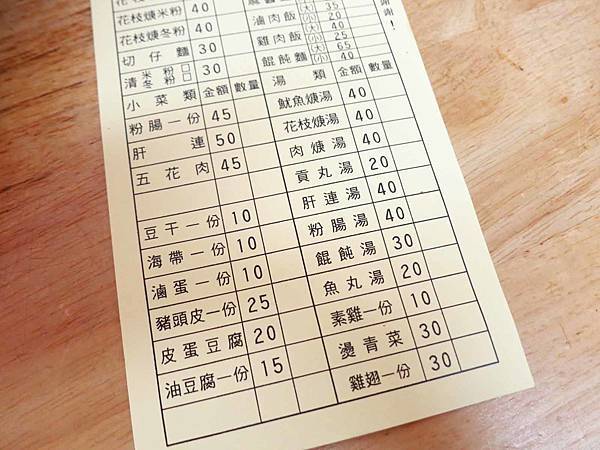 花枝焿米粉 40
花枝焿冬粉 40
切仔麵 30
清 米粉 冬粉 30
小菜類 金額 數量
粉腸一份 45
肝連 50
五花肉 45
豆干一份 10
海帶一份 10
滷蛋一份 10
豬頭皮一份 25
皮蛋豆腐 20
油豆腐一份 15
大 35
滷肉飯 小 20
雞肉飯 大 40 小 25
餛飩麵 大 65 小 40
湯類 金額 數量
魷魚焿湯 40
花枝焿湯 40
肉焿湯 40
貢丸湯 20
肝連湯 40
粉腸湯 40
餛飩湯 30
魚丸湯 20
素雞一份 10
燙青菜 30
雞翅一份 30
謝謝！